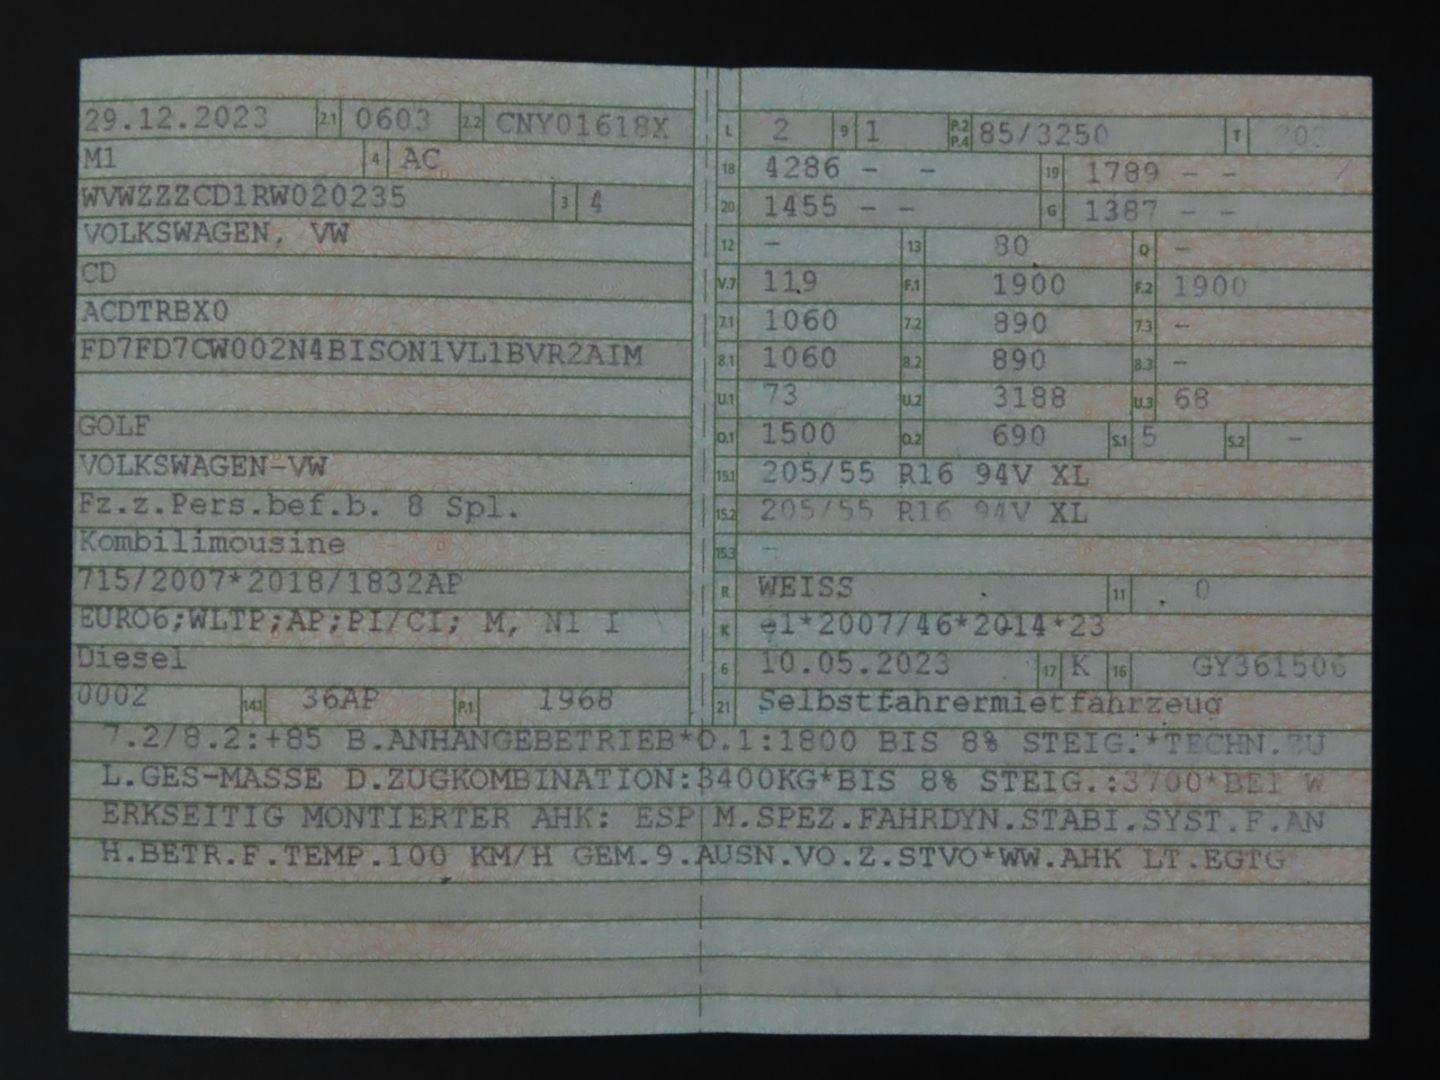 29.12.2023 2.1 0603 2.2 CNY01618X
M1 4 AC
WVWZZZCD1RW020235 3 4
VOLKSWAGEN, VW
CD
ACDTRBX0
FD7FD7CW002N4BISON1VL1BVR2AIM
GOLF
VOLKSWAGEN-VW
Fz.z.Pers.bef.b. 8 Spl.
Kombilimousine
715/2007*2018/1832AP
EURO6;WLTP;AP;PI/CI; M, N1 I
Diesel
0002 14.1 36AP P.1 1968
L 2 9 1 P.2 P.4 85/3250 T
18 4286 - - 19 1789 - -
20 1455 - - G 1387 - -
12 - 13 80 Q -
V.7 119 F.1 1900 F.2 1900
7.1 1060 7.2 890 7.3 -
8.1 1060 8.2 890 8.3 -
U.1 73 U.2 3188 U.3 68
O.1 1500 O.2 690 S.1 5 S.2 -
15.1 205/55 R16 94V XL
15.2 205/55 R16 94V XL
15.3 -
R WEISS 11 0
K e1*2007/46*2014*23
6 10.05.2023 17 K 16 GY361506
21 Selbstfahrermietfahrzeug
7.2/8.2:+85 B.ANHÄNGEBETRIEB*O.1:1800 BIS 8% STEIG.*TECHN.ZU
L.GES-MASSE D.ZUGKOMBINATION:3400KG*BIS 8% STEIG.:3700*BEI W
ERKSEITIG MONTIERTER AHK: ESP M.SPEZ.FAHRDYN.STABI.SYST.F.AN
H.BETR.F.TEMP.100 KM/H GEM.9.AUSN.VO.Z.STVO*WW.AHK LT.EGTG